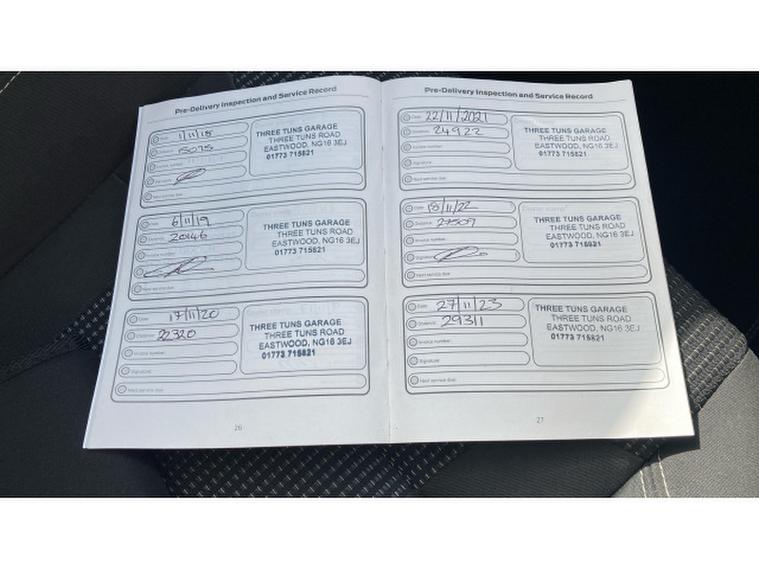 Pre-Delivery Inspection and Service Record
Date 1/11/18
Distance 15075
Invoice number
Signature
Next service due
THREE TUNS GARAGE
THREE TUNS ROAD
EASTWOOD, NG16 3EJ
01773 715821
Date 6/11/19
Distance 20146
Invoice number
Next service due
THREE TUNS GARAGE
THREE TUNS ROAD
EASTWOOD, NG16 3EJ
01773 715821
Date 17/11/20
Distance 22320
Invoice number
Signature
Next service due
THREE TUNS GARAGE
THREE TUNS ROAD
EASTWOOD, NG16 3EJ
01773 715821
26
Pre-Delivery Inspection and Service Record
Date 22/11/2021
Distance 24922
Invoice number
Signature
Next service due
THREE TUNS GARAGE
THREE TUNS ROAD
EASTWOOD, NG16 3EJ
01773 715821
Date 18/11/22
Distance 27507
Invoice number
Signature
Next service due
THREE TUNS GARAGE
THREE TUNS ROAD
EASTWOOD, NG16 3EJ
01773 715821
Date 27/11/23
Distance 29311
Invoice number
Signature
Next service due
THREE TUNS GARAGE
THREE TUNS ROAD
EASTWOOD, NG16 3EJ
01773 715821
27